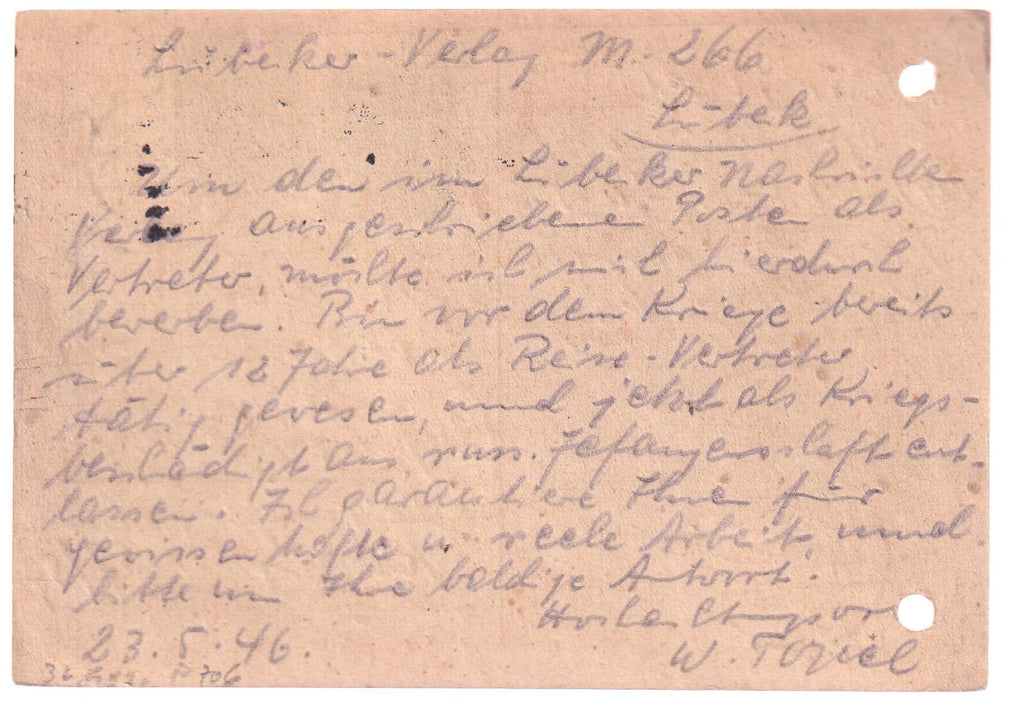 Lübeker-Verlag M. 266
Lübek
Um den im Lübeker Nachrichten
Verlag ausgeschriebene Posten als
Vertreter, möchte ich mich hierdurch
bewerben. Bin vor dem Kriege bereits
über 12 Jahre als Reise-Vertreter
tätig gewesen, und jetzt als Kriegs-
beschädigt aus russ. Gefangenschaft ent-
lassen. Ich garantiere Ihnen für
gewissenhafte u. reele Arbeit, und
bitte um Ihre baldige Antwort.
Hochachtungsvoll
23.5.46.
W.
706